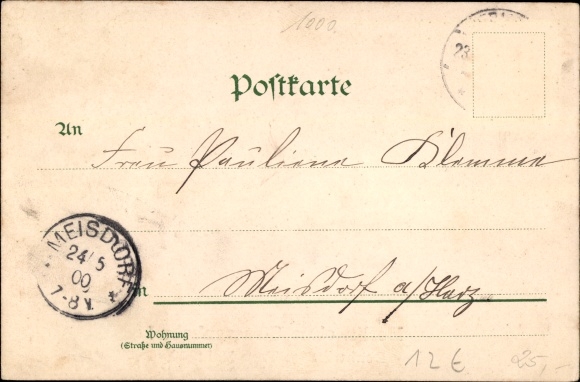 1000.
23
Postkarte
An
Frau Pauliena Klemme
MEISDORF
24/5
00
7-8 V.
in
Meisdorf a/Harz.
Wohnung
(Straße und Hausnummer)
12 €
25,-